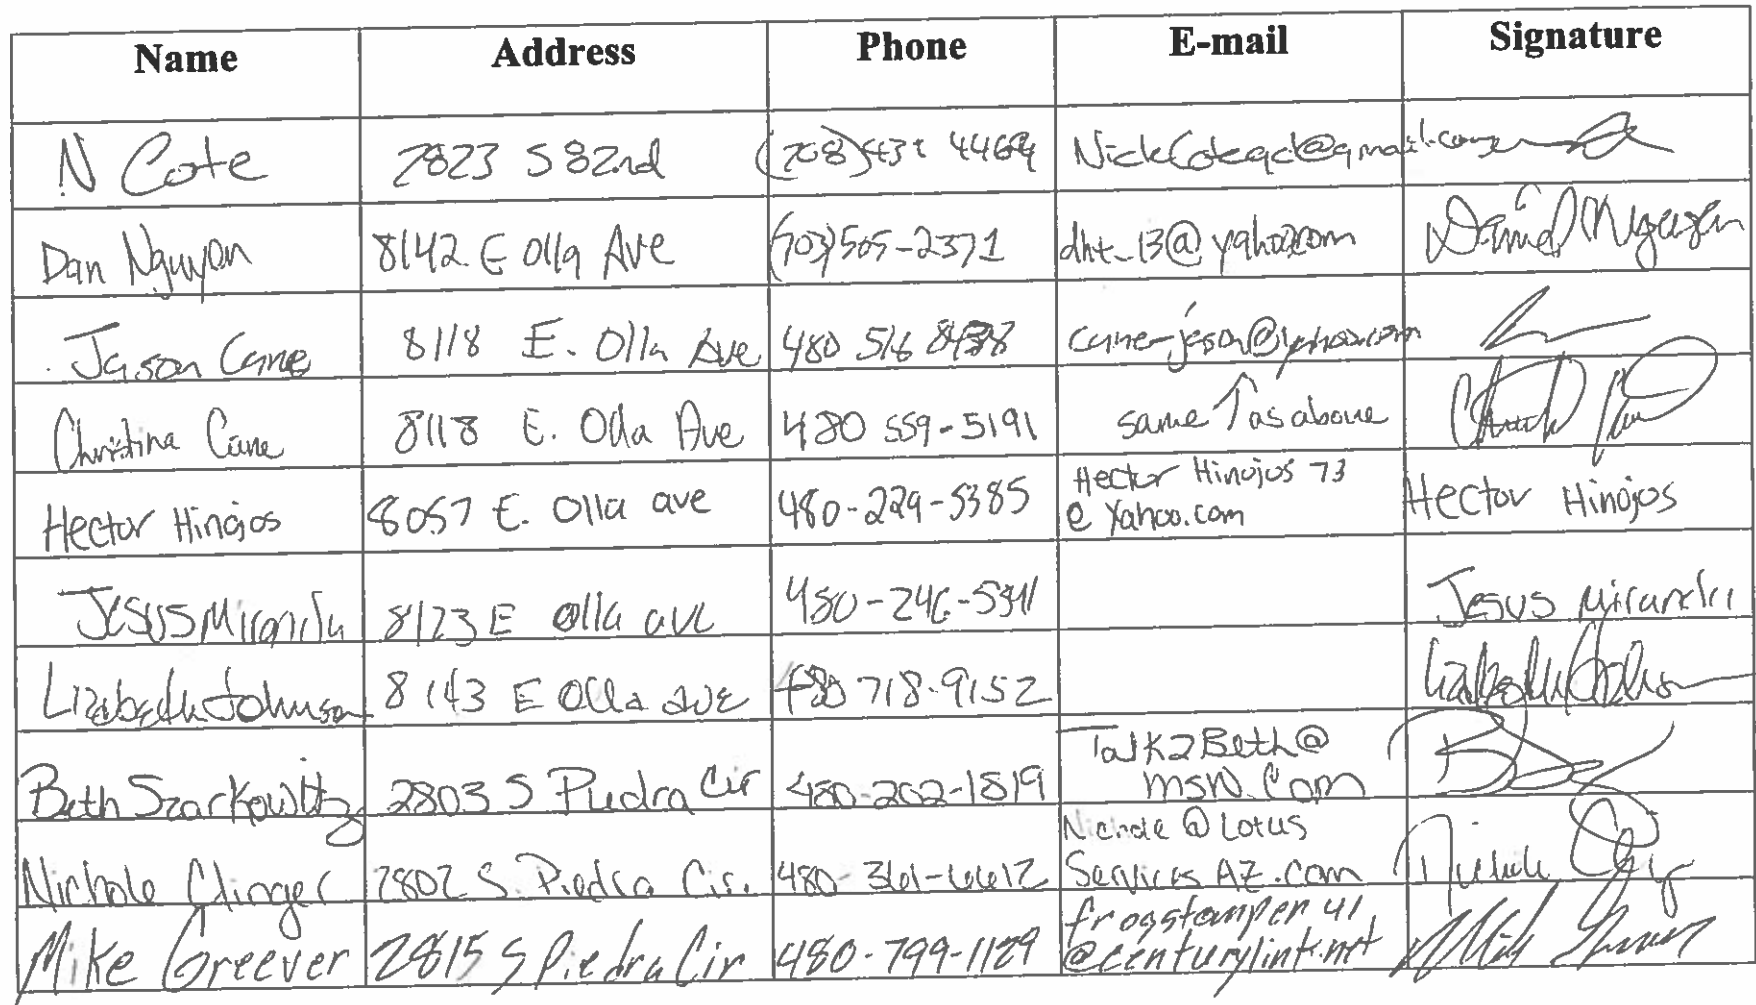 Name Address Phone E-mail Signature
N Cote 2823 S 82nd (208) 4469
Dan Nguyen 8142 E Olla Ave (703) 505-2371 dht_13@yahoo.com Daniel Nguyen
Jason Cane 8118 E. Olla Ave 480 516
Christina Cane 8118 E. Olla Ave 480 559-5191 same ↑ as above
Hector Hinojos 8057 E. Olla ave 480-229-5385 Hector Hinojos 73 Hector Hinojos
@ Yahoo.com
Jesus Miranda 8123 E Olla ave 480-246-5341 Jesus Miranda
Lizabeth Johnson 8143 E Olla ave 480 718-9152 Lizabeth Johnson
Beth Szarkowitz 2803 S Piedra Cir 480-202-1819 Talk2Beth@
msn.com
Nichole Clinger 2802 S. Piedra Cir. 480-361-6612 Nichole @ Lotus
Services AZ.com
Mike Greever 2815 S Piedra Cir 480-799-1129 frogstamper41
@centurylink.net